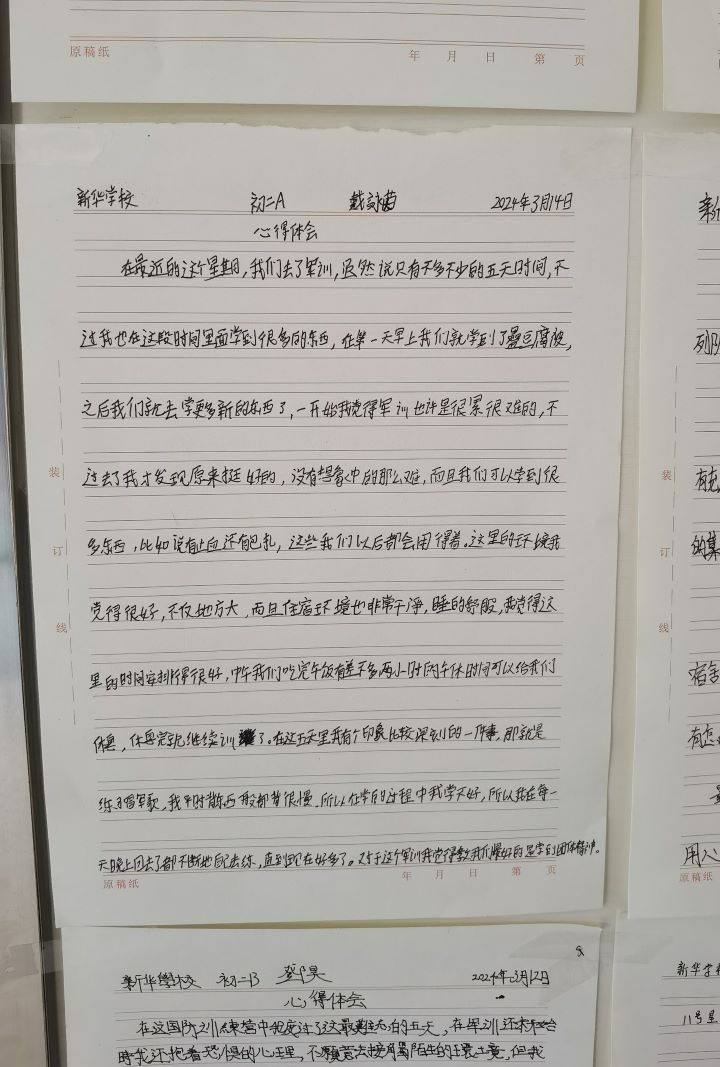 原稿纸 年 月 日 第 页
新华学校 初二A 戴詠茵 2024年3月14日
心得体会
在最近的这个星期，我们去了军训，虽然说只有不多不少的五天时间，不
过我也在这段时间里面学到很多的东西，在第一天早上我们就学到了叠豆腐被，
之后我们就去学更多新的东西了，一开始我觉得军训也许是很累很难的，不
过去了我才发现原来挺好的，没有想象中的那么难，而且我们可以学到很
多东西，比如说有止血还有包扎，这些我们以后都会用得着。这里的环境我
觉得很好，不仅地方大，而且住宿环境也非常干净，睡的舒服，我觉得这
里的时间安排得很好，中午我们吃完午饭有差不多两小时的午休时间可以给我们
休息，休息完就继续训了。在这五天里我有个印象比较深刻的一件事，那就是
练习唱军歌，我平时背东西一般都背很慢，所以在学的过程中我学不好，所以我在每一
天晚上回去了都不断地自己去练，直到现在好多了。对于这个军训我觉得教我们最好的是学到团体精神。
装
订
线
原稿纸 年 月 日 第 页
新华學校 初二B 2024年3月12日
心得体会
在这国防训练营中我度过了这最难忘的五天，在军训还未开始
時我还抱着恐惧的心理，不願意去接觸陌生的環境，但我
新
列队
有
的某
宿舍
有怎
用心
装
订
线
原稿纸
新华学校
11号星